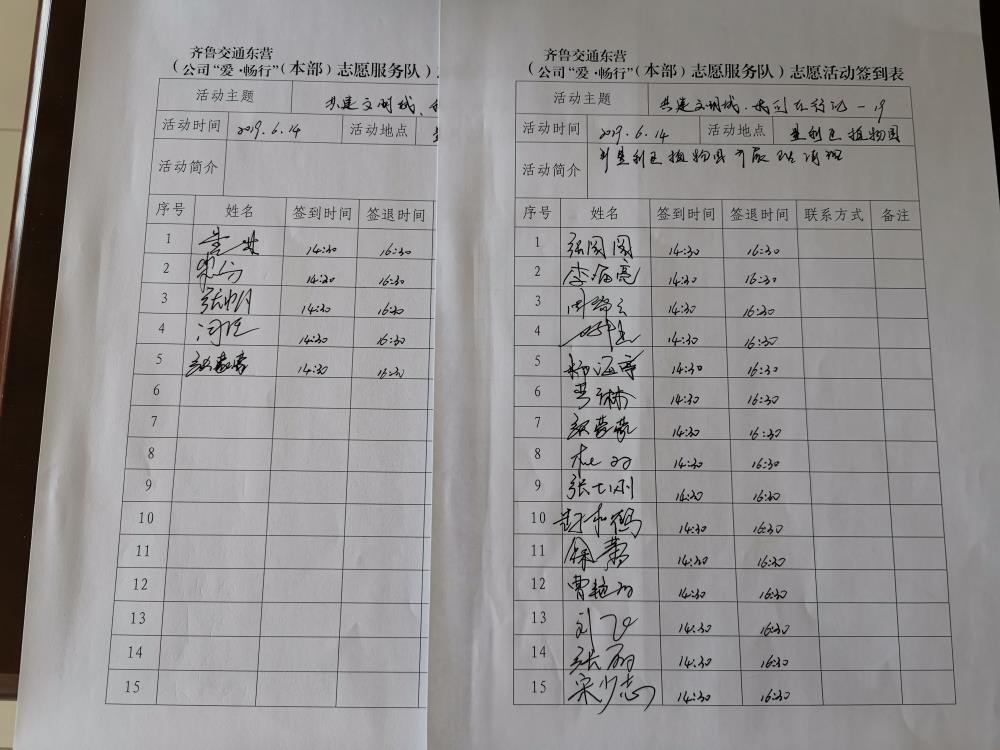 齐鲁交通东营
（公司“爱·畅行”（本部）志愿服务队）
活动主题 共建文明城、
活动时间 2019.6.14 活动地点
活动简介
序号 姓名 签到时间 签退时间
1 14:30 16:30
2 14:30 16:30
3 张 14:30 16:30
4 14:30 16:30
5 14:30 16:30
6
7
8
9
10
11
12
13
14
15
齐鲁交通东营
（公司“爱·畅行”（本部）志愿服务队）志愿活动签到表
活动主题 共建文明城、我们在行动
活动时间 2019.6.14 活动地点 垦利区植物园
活动简介 到垦利区植物园开展垃圾清理
序号 姓名 签到时间 签退时间 联系方式 备注
1 张园园 14:30 16:30
2 李海亮 14:30 16:30
3 周 14:30 16:30
4 14:30 16:30
5 杨海亭 14:30 16:30
6 14:30 16:30
7 14:30 16:30
8 14:30 16:30
9 张 刚 14:30 16:30
10 14:30 16:30
11 14:30 16:30
12 曹艳 14:30 16:30
13 刘飞 14:30 16:30
14 张丽 14:30 16:30
15 宋少志 14:30 16:30